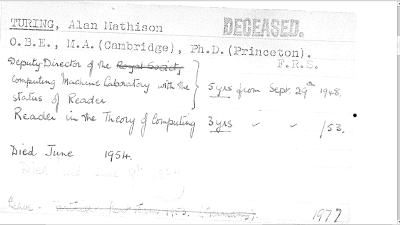 TURING, Alan Mathison DECEASED.
O.B.E., M.A.(Cambridge), Ph.D.(Princeton).
F.R.S.
Deputy-Director of the Royal Society
Computing Machine Laboratory with the
status of Reader
5 yrs from Sept. 29th 1948.
Reader in the Theory of Computing 3 yrs " " /53.
Died June 1954.
1977